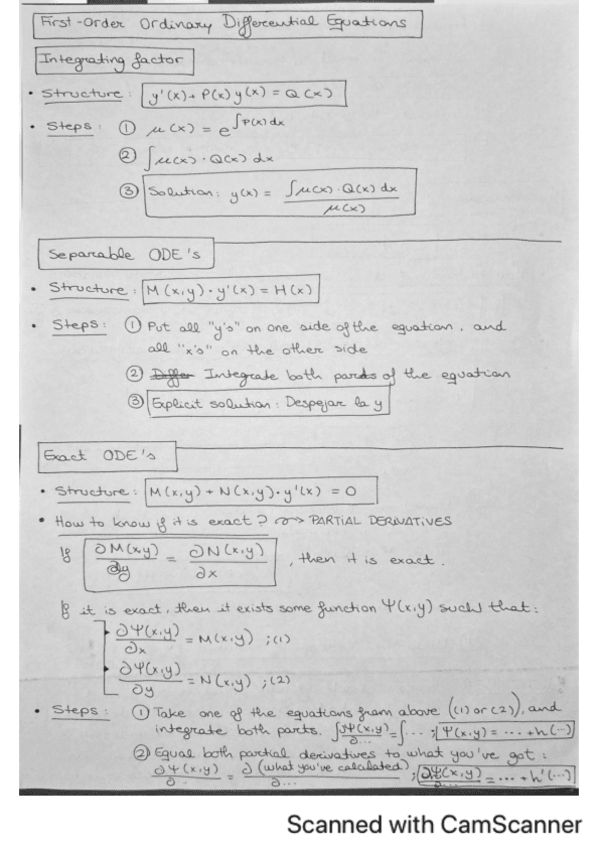 First-Order Ordinary Differential Equations
Integrating factor
• Structure: y'(x) + P(x) y(x) = Q(x)
• Steps: ① μ(x) = e^∫P(x)dx
② ∫μ(x) · Q(x) dx
③ Solution: y(x) = ∫μ(x) · Q(x) dx / μ(x)
Separable ODE's
• Structure: M(x,y) · y'(x) = H(x)
• Steps: ① Put all "y's" on one side of the equation, and
all "x's" on the other side
② Differ Integrate both parts of the equation
③ Explicit solution: Despejar la y
Exact ODE's
• Structure: M(x,y) + N(x,y) · y'(x) = 0
• How to know if it is exact? ~> PARTIAL DERIVATIVES
If ∂M(x,y)/∂y = ∂N(x,y)/∂x, then it is exact.
If it is exact, then it exists some function Ψ(x,y) such that:
∂Ψ(x,y)/∂x = M(x,y) ; (1)
∂Ψ(x,y)/∂y = N(x,y) ; (2)
• Steps: ① Take one of the equations from above ((1) or (2)), and
integrate both parts. ∫∂Ψ(x,y)/∂... = ∫... ; Ψ(x,y) = ... + h(...)
② Equal both partial derivatives to what you've got:
∂Ψ(x,y)/∂... = ∂(what you've calculated)/∂... ; ∂Ψ(x,y)/∂... = ... + h'(...)
Scanned with CamScanner